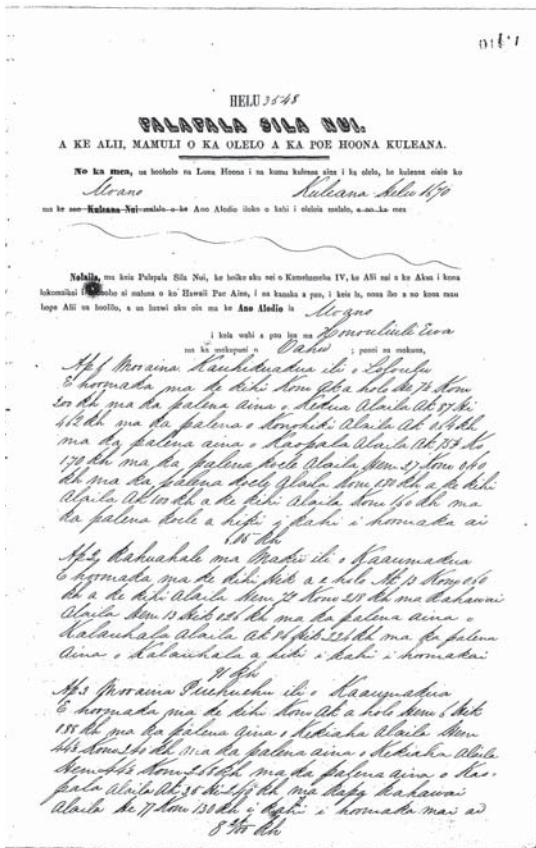 HELU 3548
PALAPALA SILA NUI.
A KE ALII, MAMULI O KA OLELO A KA POE HOONA KULEANA.
No ka mea, ua hooholo na Luna Hoona i na kumu kuleana aina i ka olelo, he kuleana oiaio ko
Moano Kuleana Helu 1670
ma ke ano Kuleana Nui malalo o ke Ano Alodio iloko o kahi i oleloia malalo, a no ka mea
Nolaila, ma keia Palapala Sila Nui, ke hoike aku nei o Kamehameha IV, ke Alii nui a ke Akua i kona
lokomaikai i hoonoho ai maluna o ko Hawaii Pae Aina, i na kanaka a pau, i keia la, nona iho a no kona mau
hope Alii ua haawiaku oia ma ke Ano Alodio ia Moano
i kela wahi a pau loa ma Honouliuli Ewa
ma ka mokupuni o Oahu ; penei na mokuna,
Ap 1 Moo aina Kauhikuakua ili o
E hoomaka ma ke kihi Kom Ak a holo He 74 Kom
200 Kh ma ka palena aina o Kekua Alaila Ak 87 Hi
462 Kh ma ka palena o Konohiki Alaila Ak 064 Kh
ma ka palena aina o Kaopala Alaila
170 Kh ma ka palena koele Alaila Hem 27 Kom 040
Kh ma ka palena koele Alaila Kom 180 Kh a ke kihi
Alaila Ak 100 Kh a ke kihi Alaila Kom 160 Kh ma
ka palena koele a hiki i kahi i hoomaka ai
Kh
Ap 2 Kahuahale ma Makii ili o Kaaumakua
E hoomaka ma ke kihi Hik a e holo Ak 13 Kom 060
Kh a ke kihi Alaila Hem 72 Kom 218 Kh ma Kahawai
Alaila Hem 13 Hik 026 Kh ma ka palena aina o
Kalauhala Alaila Ak 86 Hik 226 Kh ma ka palena
Aina o Kalauhala a hiki i kahi i hoomakai
91 Kh
Ap 3 Moo aina Puehuehu ili o Kaaumakua
E hoomaka ma ke kihi Kom Ak a holo Hem 6 Hik
188 Kh ma ka palena aina o Kekiaha Alaila Hem
44½ Kom 240 Kh ma ka palena aina o Kekiaha Alaila
Hem 44½ Kom 268 Kh ma ka palena aina o Kao-
pala Alaila Ak 35 Hi 249 Kh ma kapa Kahawai
Alaila He 77 Kom 130 Kh i kahi i hoomaka mai ai
Kh